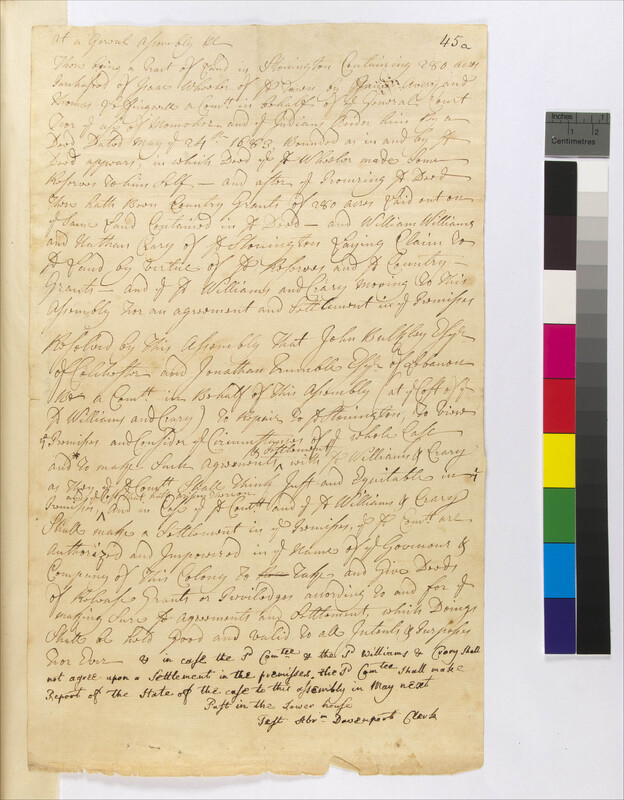 45a
at a Genral Assembly &c
There being a Tract of Land in Stonington Containing 280 acres
Purchased of Isaac Wheeler of sd Town by James Avery and
Thomas a Comtt in behalf of ye General Court
For ye use of Momohoe and ye Indians under him by a
Deed Dated May ye 24th 1683. Bounded as in and by sd
Deed appears in which Deed ye sd Wheeler made Some
Reserves to him Self — and after ye Procuring sd Deed
There hath Been Country Grants of 280 acres Laid out on
ye Same Land Contained in sd Deed — and William Williams
and Nathan Crary of sd Stonington Laying Claim to
sd Land by Virtue of sd Reserves and sd Country —
Grants — and ye sd Williams and Crary moving to This
Assembly For an agreement and Settlement in ye Premises
Resolved by This Assembly That John Bulkley Esqr
of Colchester and Jonathan Trumble Esqr of Lebanon
be a Comtt in Behalf of This Assembly at ye Cost of ye
sd Williams and Crary) To Repair To sd Stonington, To View
ye Premises and Consider ye Circumstances of ye whole Case
and To make Such Agreements & Settlement with sd Williams & Crary
as They ye sd Comtt Shall Think Just and Equitable in ye
Premises, And in Case ye sd Comtt and ye sd Williams & Crary
Shall make a Settlement in ye Premises, ye sd Comtt are
Authorized and Impowered in ye Name of ye Governour &
Company of This Colony To Take and Give Deeds
of Release Grants or Priviledges according to and for ye
making Sure sd Agreements and Settlement, which Doings
Shall be held Good and Valid to all Intents & Purposes
For Ever & in case the sd Comtee & the sd Williams & Crary Shall
not agree upon a Settlement in the premisses, the sd Comtee Shall make
Report of the State of the case to this assembly in May next
Past in the Lower house
Test Abrm Davenport Clerk
Inches
1 2
Centimetres